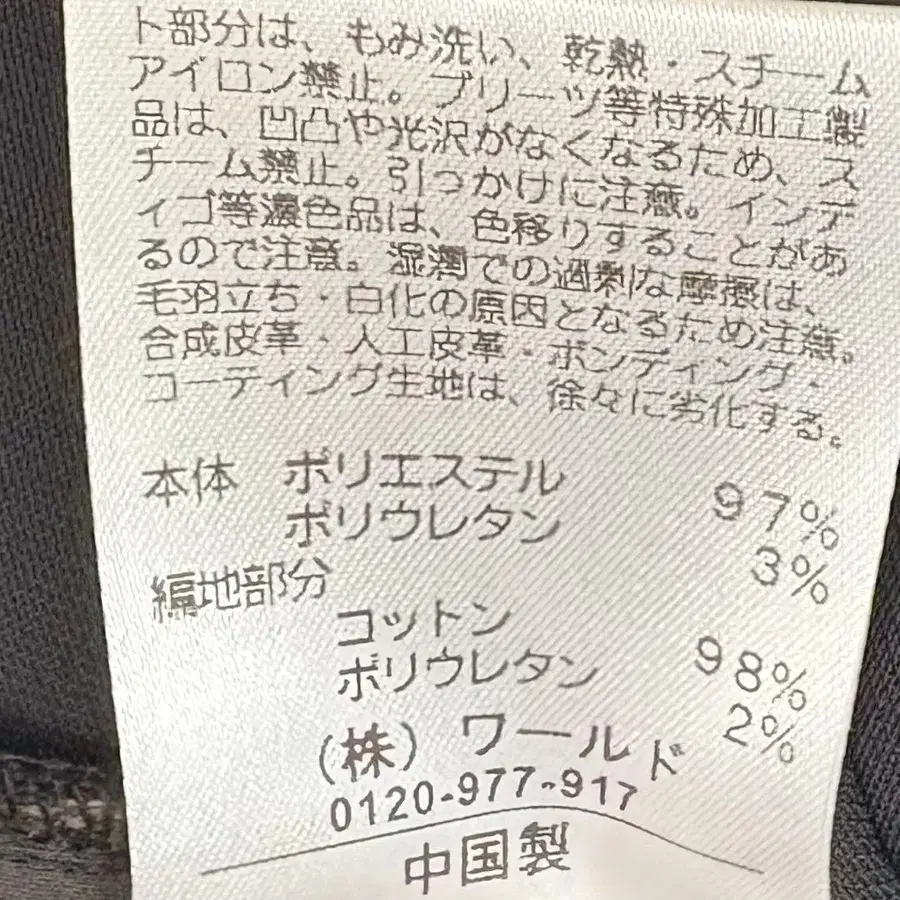 ト部分は、もみ洗い、乾熱・スチーム
アイロン禁止。プリーツ等特殊加工製
品は、凹凸や光沢がなくなるため、ス
チーム禁止。引っかけに注意。インデ
ィゴ等濃色品は、色移りすることがあ
るので注意。湿潤での過剰な摩擦は、
毛羽立ち・白化の原因となるため注意。
合成皮革・人工皮革・ボンディング・
コーティング生地は、徐々に劣化する。
本体 ポリエステル 97%
ポリウレタン 3%
編地部分
コットン 98%
ポリウレタン 2%
(株) ワールド
0120-977-917
中国製